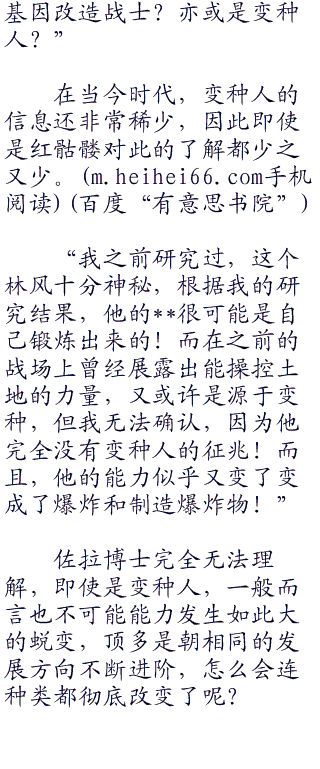 基因改造战士？亦或是变种
人？”
在当今时代，变种人的
信息还非常稀少，因此即使
是红骷髅对此的了解都少之
又少。(m.heihei66.com手机
阅读)(百度“有意思书院”)
“我之前研究过，这个
林风十分神秘，根据我的研
究结果，他的**很可能是自
己锻炼出来的！而在之前的
战场上曾经展露出能操控土
地的力量，又或许是源于变
种，但我无法确认，因为他
完全没有变种人的征兆！而
且，他的能力似乎又变了变
成了爆炸和制造爆炸物！”
佐拉博士完全无法理
解，即使是变种人，一般而
言也不可能能力发生如此大
的蜕变，顶多是朝相同的发
展方向不断进阶，怎么会连
种类都彻底改变了呢？